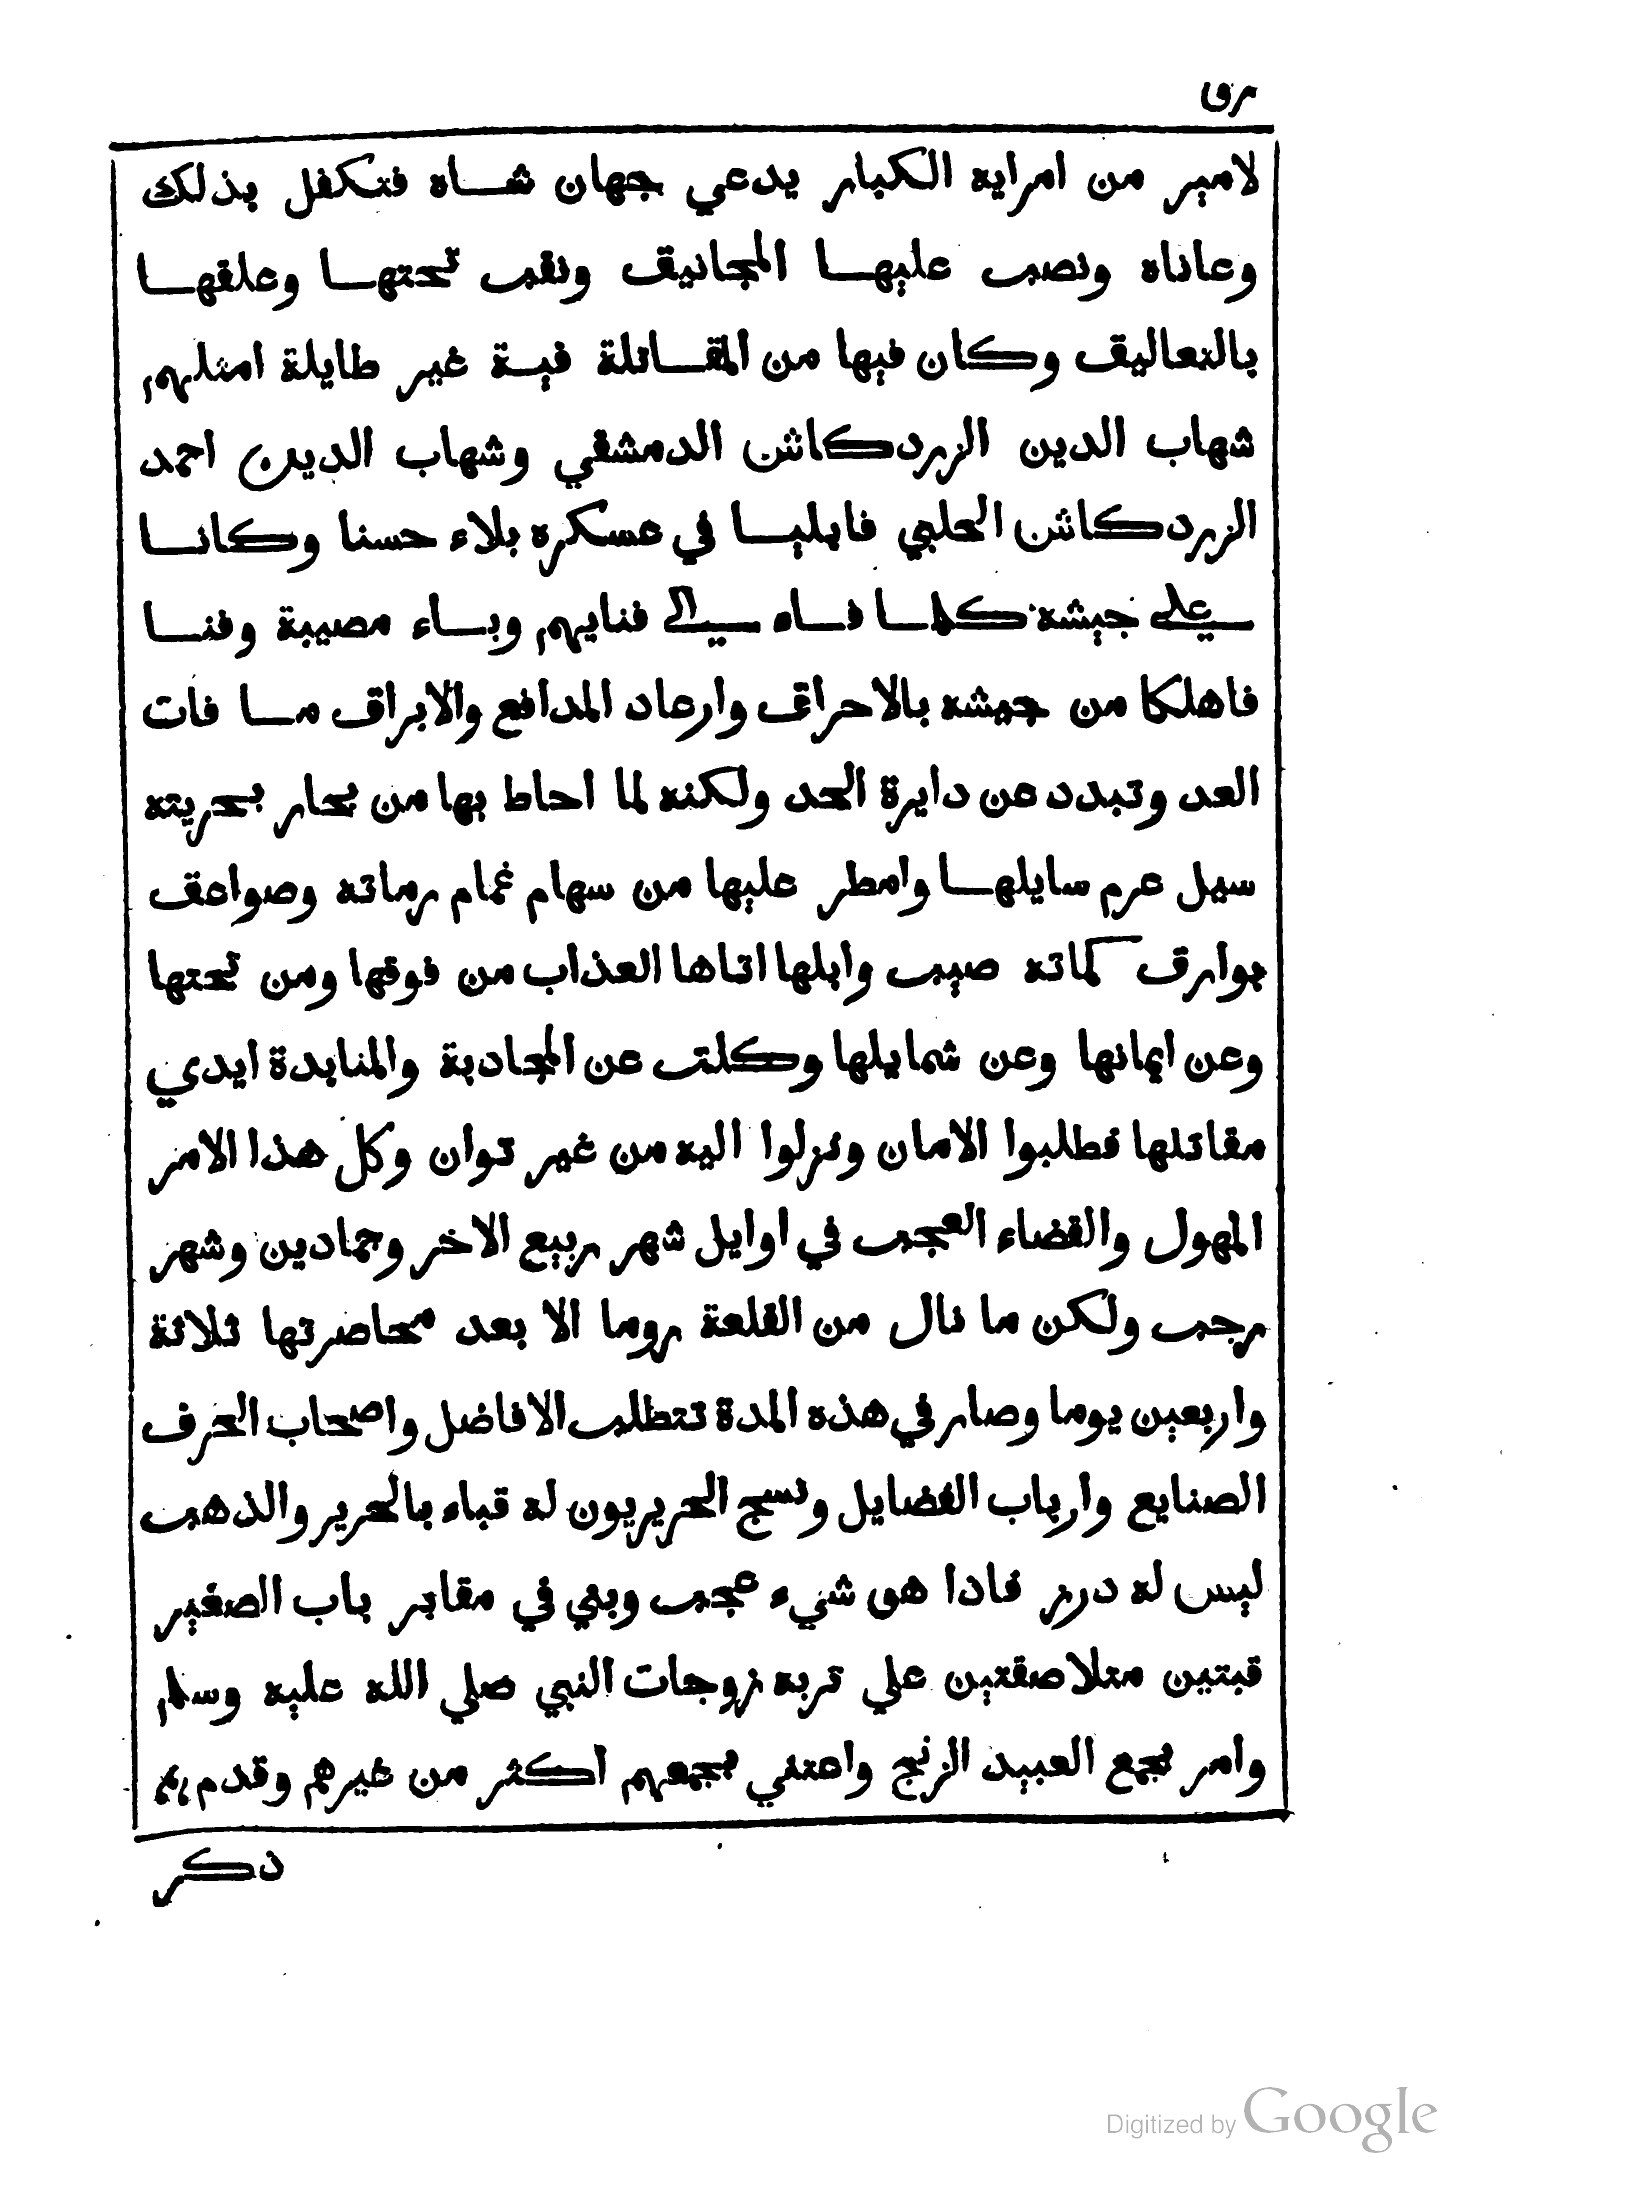 لامير من امرايه الكبار يدعي جهان شاه فتكفل بذلك
وعاناه ونصب عليها المجانيق ونقب تحتها وعلقها
بالتعاليق وكان فيها من المقاتلة فية غير طايلة امثلهم
شهاب الدين الزردكاش الدمشقي وشهاب الدين احمد
الزردكاش الحلبي فابليا في عسكره بلاء حسنا وكانا
علي جيشه كلما فاه الي فنايهم وباء مصيبة وفنا
فاهلكا من جيشه بالاحراق وارعاد المدافع والابراق ما فات
العد وتبدد عن دايرة الحد ولكنه لما احاط بها من بحار بحريته
سيل عرم سايلها وامطر عليها من سهام غمام رماته وصواعق
بوارق كماته صيب وابلها اتاها العذاب من فوقها ومن تحتها
وعن ايمانها وعن شمايلها وكلت عن المجادبة والمنابدة ايدي
مقاتلها فطلبوا الامان ونزلوا اليه من غير توان وكل هذا الامر
المهول والقضاء العجب في اوايل شهر ربيع الاخر وجمادين وشهر
رجب ولكن ما نال من القلعة روما الا بعد محاصرتها ثلاثة
واربعين يوما وصار في هذه المدة تتطلب الافاضل واصحاب الحرف
الصنايع وارباب الفضايل ونسج الحريريون له قباء بالحرير والذهب
ليس له درز فاذا هو شيء عجب وبني في مقابر باب الصغير
قبتين متلاصقتين علي تربه زوجات النبي صلي الله عليه وسلم
وامر بجمع العبيد الزنج واعتني بجمعهم اكثر من غيرهم وقدم بهم
ذكر
Digitized by Google